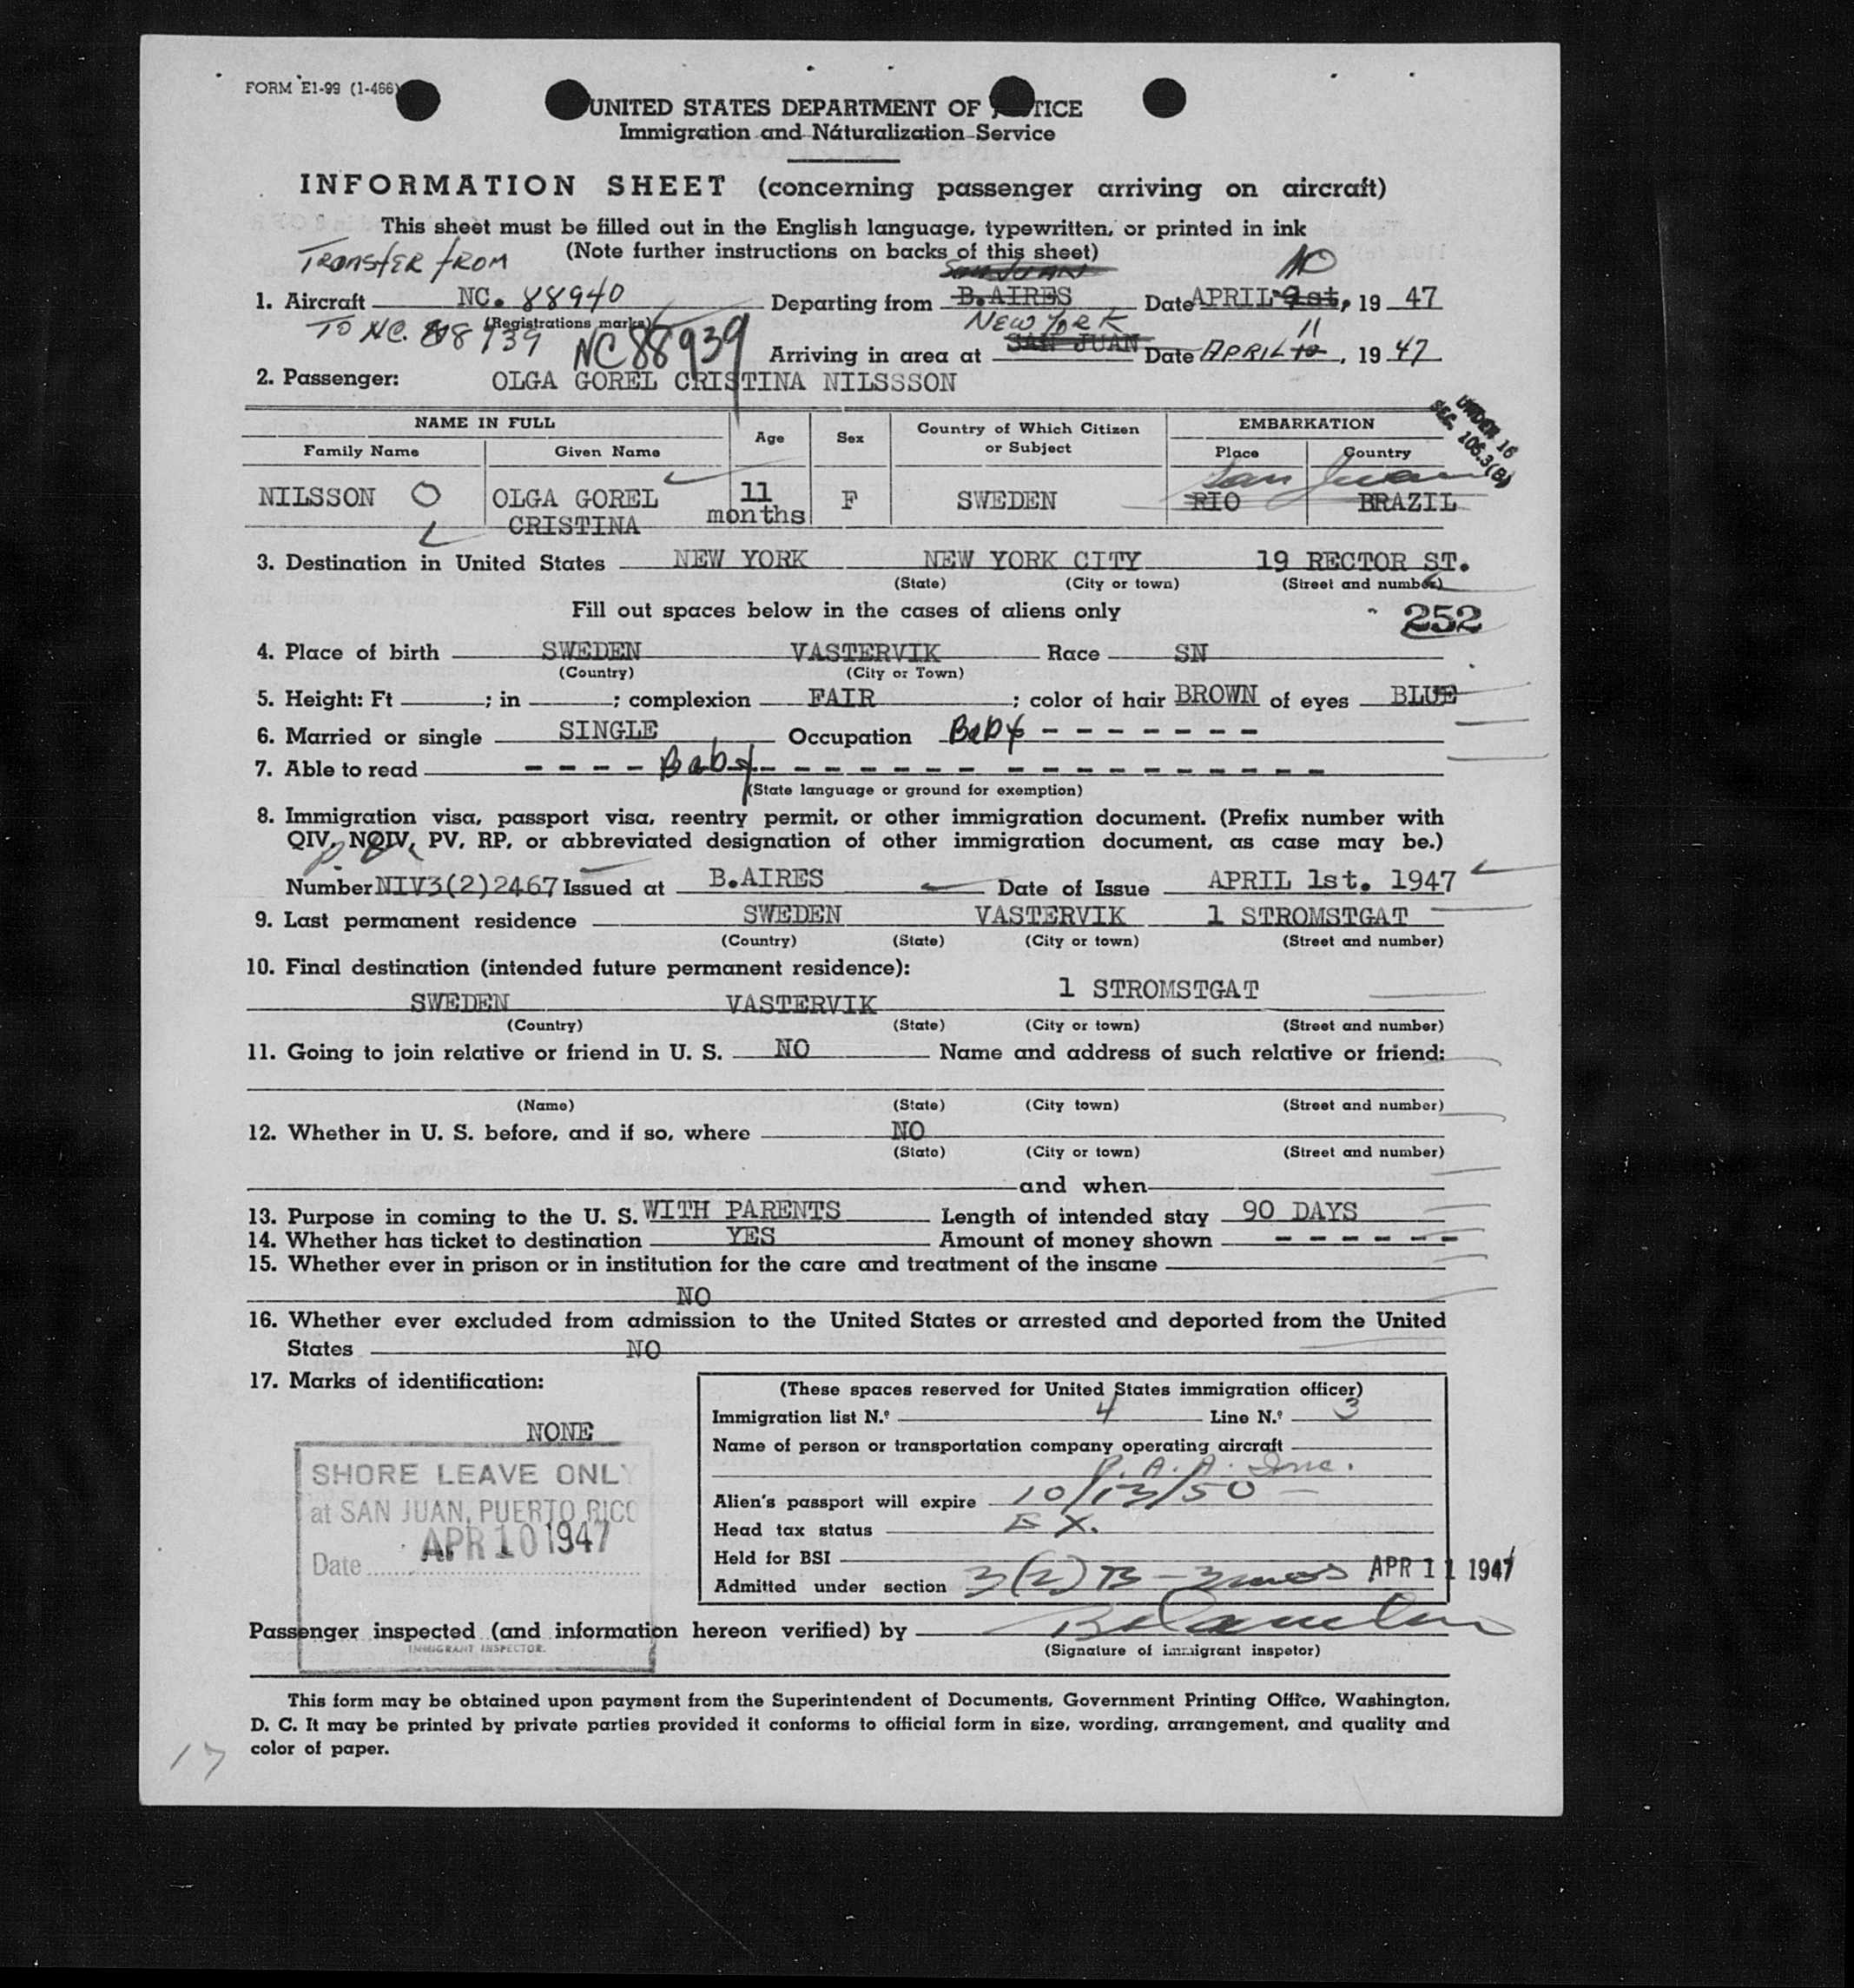 FORM E1-99 (1-466)
UNITED STATES DEPARTMENT OF TICE
Immigration and Naturalization Service
INFORMATION SHEET (concerning passenger arriving on aircraft)
This sheet must be filled out in the English language, typewritten, or printed in ink
(Note further instructions on backs of this sheet)
TRANSFER FROM
SAN JUAN 10
1. Aircraft NC. 88940 Departing from B.AIRES Date APRIL 9st, 19 47
(Registrations marks)
TO NC. 88939 NC88939 NEW YORK 11
Arriving in area at SAN JUAN Date APRIL 10, 19 47
2. Passenger: OLGA GOREL CRISTINA NILSSSON
UNDER 16
SEC. 106.3(B)
NAME IN FULL Age Sex Country of Which Citizen or Subject EMBARKATION
Family Name Given Name Place Country
San Juan
NILSSON OLGA GOREL CRISTINA 11 months F SWEDEN RIO BRAZIL
3. Destination in United States NEW YORK NEW YORK CITY 19 RECTOR ST.
(State) (City or town) (Street and number)
Fill out spaces below in the cases of aliens only 252
4. Place of birth SWEDEN VASTERVIK Race SN
(Country) (City or Town)
5. Height: Ft ; in ; complexion FAIR ; color of hair BROWN of eyes BLUE
6. Married or single SINGLE Occupation BaBy - - - - - - -
7. Able to read - - - - Baby - - - - - - - - - - - - - - - -
(State language or ground for exemption)
8. Immigration visa, passport visa, reentry permit, or other immigration document. (Prefix number with
QIV, NQIV, PV, RP, or abbreviated designation of other immigration document, as case may be.)
Number NIV3(2)2467 Issued at B.AIRES Date of Issue APRIL 1st. 1947
9. Last permanent residence SWEDEN VASTERVIK 1 STROMSTGAT
(Country) (State) (City or town) (Street and number)
10. Final destination (intended future permanent residence):
SWEDEN VASTERVIK 1 STROMSTGAT
(Country) (State) (City or town) (Street and number)
11. Going to join relative or friend in U. S. NO Name and address of such relative or friend:
(Name) (State) (City town) (Street and number)
12. Whether in U. S. before, and if so, where NO
(State) (City or town) (Street and number)
and when
13. Purpose in coming to the U. S. WITH PARENTS Length of intended stay 90 DAYS
14. Whether has ticket to destination YES Amount of money shown - - - - - -
15. Whether ever in prison or in institution for the care and treatment of the insane
NO
16. Whether ever excluded from admission to the United States or arrested and deported from the United
States NO
17. Marks of identification:
NONE
SHORE LEAVE ONLY
at SAN JUAN, PUERTO RICO
Date APR 10 1947
IMMIGRANT INSPECTOR.
(These spaces reserved for United States immigration officer)
Immigration list N.º 4 Line N.º 3
Name of person or transportation company operating aircraft
P. A. A. Inc.
Alien's passport will expire 10/13/50
Head tax status EX.
Held for BSI
Admitted under section 3(2) B - 3 mos APR 11 1947
Passenger inspected (and information hereon verified) by
(Signature of immigrant inspetor)
This form may be obtained upon payment from the Superintendent of Documents, Government Printing Office, Washington,
D. C. It may be printed by private parties provided it conforms to official form in size, wording, arrangement, and quality and
color of paper.
17